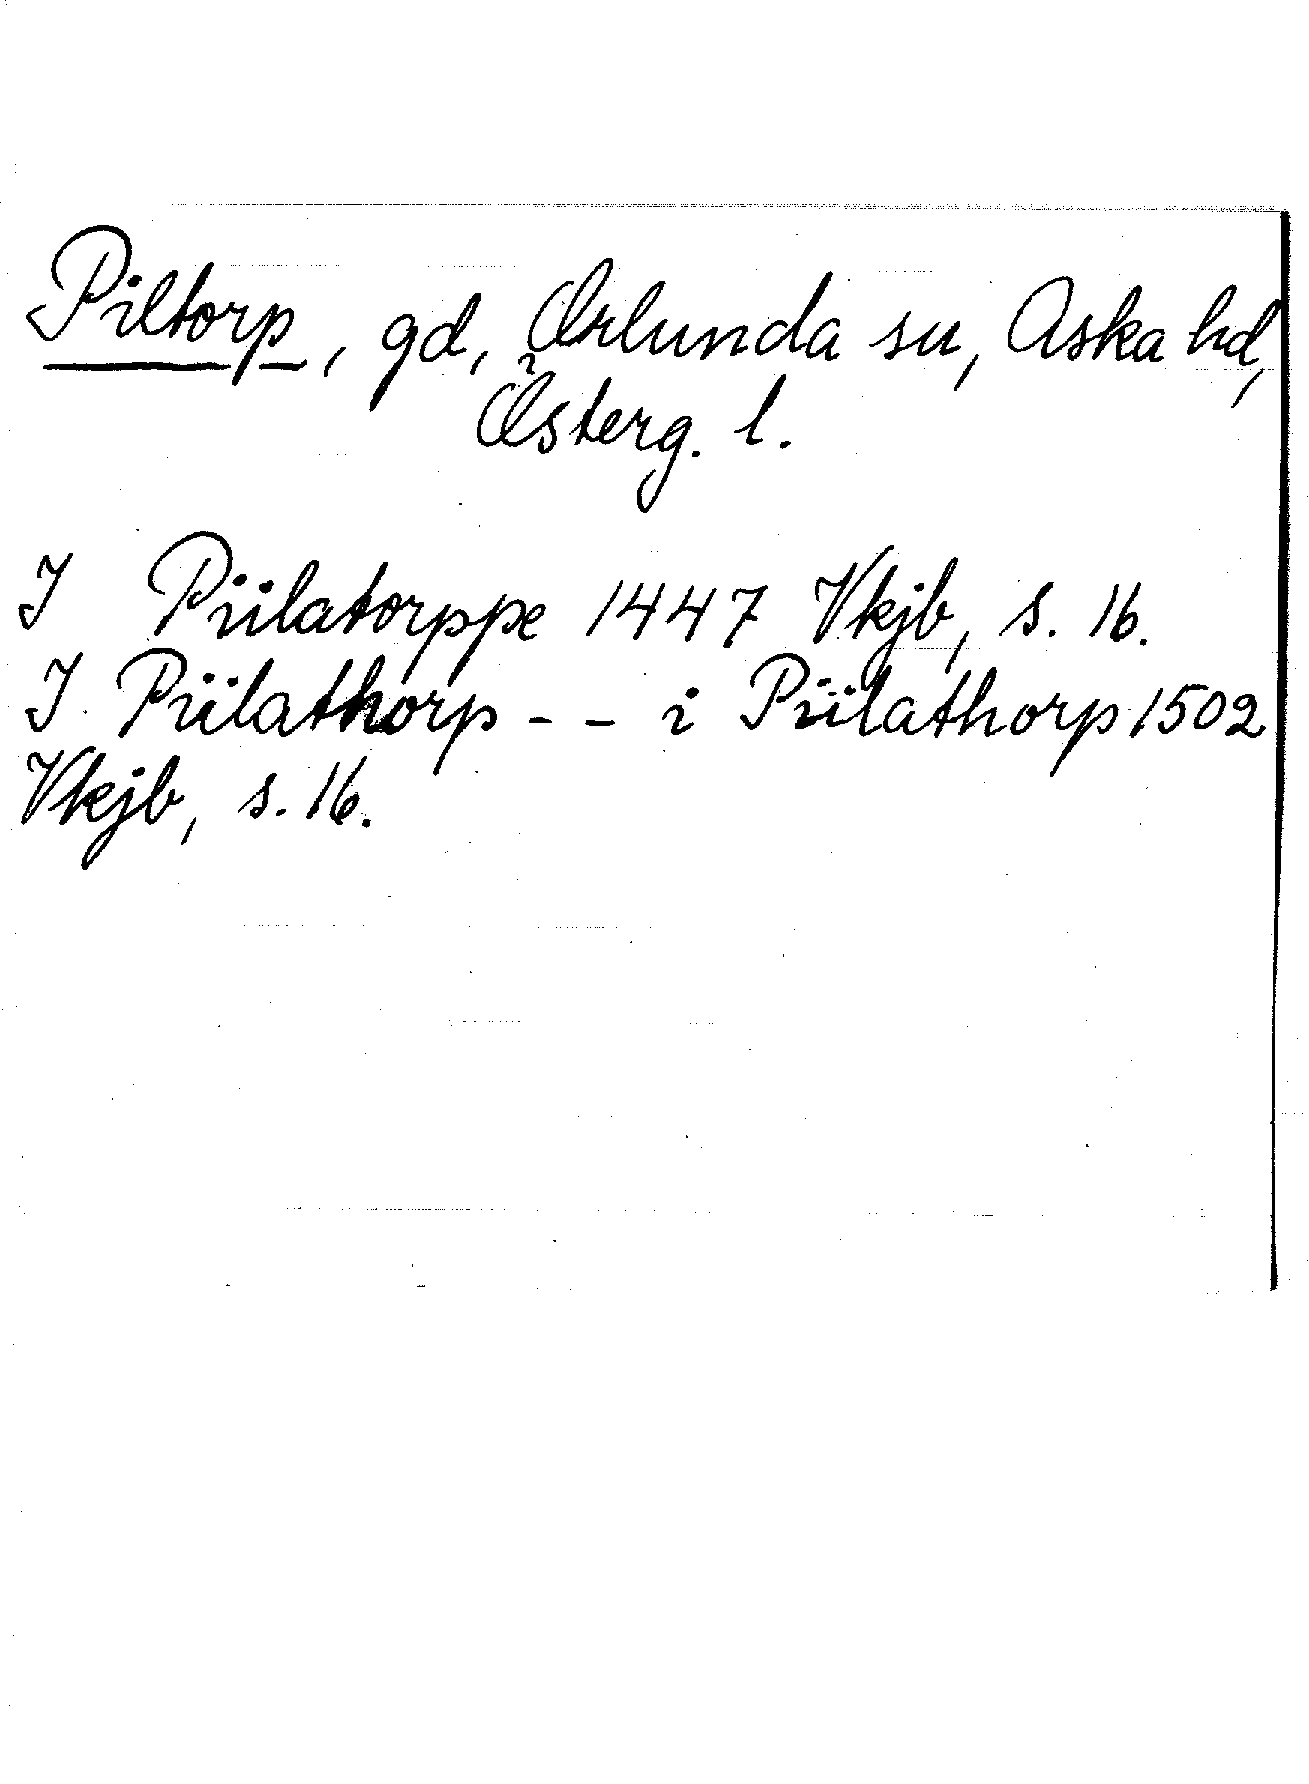 Piltorp, gd, Orlunda sn, Aska hd,
Österg. l.
I Piilatorppe 1447 Vkjb, s. 16.
I Piilathorp - - i Piilathorp 1502
Vkjb, s. 16.